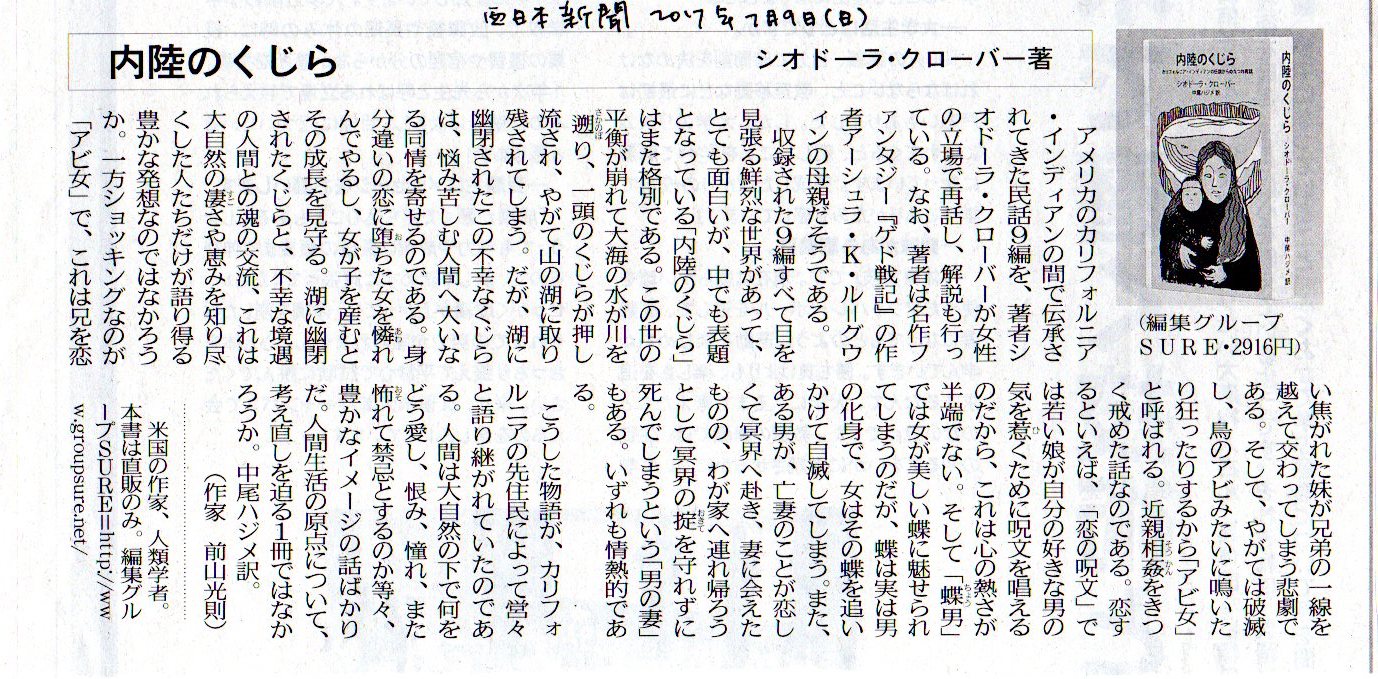 西日本新聞 2017年7月9日(日)
内陸のくじら
シオドーラ・クローバー著
内陸のくじら
カリフォルニア・インディアンの伝説からの九つの再話
シオドーラ・クローバー
中尾ハジメ 訳
内陸のくじら シオドーラ・クローバー 中尾ハジメ 訳
(編集グループ
SURE・2916円)
アメリカのカリフォルニア
・インディアンの間で伝承さ
れてきた民話9編を、著者シ
オドーラ・クローバーが女性
の立場で再話し、解説も行っ
ている。なお、著者は名作フ
ァンタジー『ゲド戦記』の作
者アーシュラ・K・ル=グウ
ィンの母親だそうである。
収録された9編すべて目を
見張る鮮烈な世界があって、
とても面白いが、中でも表題
となっている「内陸のくじら」
はまた格別である。この世の
平衡が崩れて大海の水が川を
遡り、一頭のくじらが押し
流され、やがて山の湖に取り
残されてしまう。だが、湖に
幽閉されたこの不幸なくじら
は、悩み苦しむ人間へ大いな
る同情を寄せるのである。身
分違いの恋に堕ちた女を憐れ
んでやるし、女が子を産むと
その成長を見守る。湖に幽閉
されたくじらと、不幸な境遇
の人間との魂の交流、これは
大自然の凄さや恵みを知り尽
くした人たちだけが語り得る
豊かな発想なのではなかろう
か。一方ショッキングなのが
「アビ女」で、これは兄を恋
い焦がれた妹が兄弟の一線を
越えて交わってしまう悲劇で
ある。そして、やがては破滅
し、鳥のアビみたいに鳴いた
り狂ったりするから「アビ女」
と呼ばれる。近親相姦をきつ
く戒めた話なのである。恋す
るといえば、「恋の呪文」で
は若い娘が自分の好きな男の
気を惹くために呪文を唱える
のだから、これは心の熱さが
半端でない。そして「蝶男」
では女が美しい蝶に魅せられ
てしまうのだが、蝶は実は男
の化身で、女はその蝶を追い
かけて自滅してしまう。また、
ある男が、亡妻のことが恋し
くて冥界へ赴き、妻に会えた
ものの、わが家へ連れ帰ろう
として冥界の掟を守れずに
死んでしまうという「男の妻」
もある。いずれも情熱的であ
る。
こうした物語が、カリフォ
ルニアの先住民によって営々
と語り継がれていたのであ
る。人間は大自然の下で何を
どう愛し、恨み、憧れ、また
怖れて禁忌とするのか等々、
豊かなイメージの話ばかり
だ。人間生活の原点について、
考え直しを迫る1冊ではなか
ろうか。中尾ハジメ訳。
(作家 前山光則)
米国の作家、人類学者。
本書は直販のみ。編集グル
ープSURE=http://ww
w.groupsure.net/